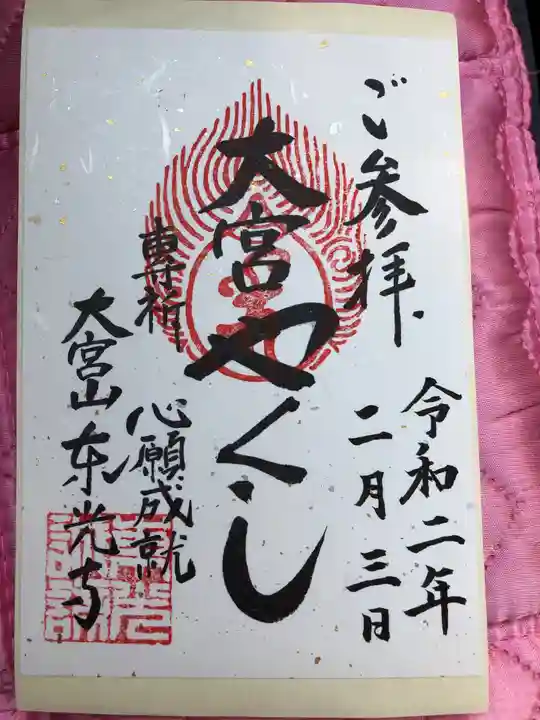 ご参拝
令和二年
二月三日
大宮やくし
専祈
心願成就
大宮山東光寺